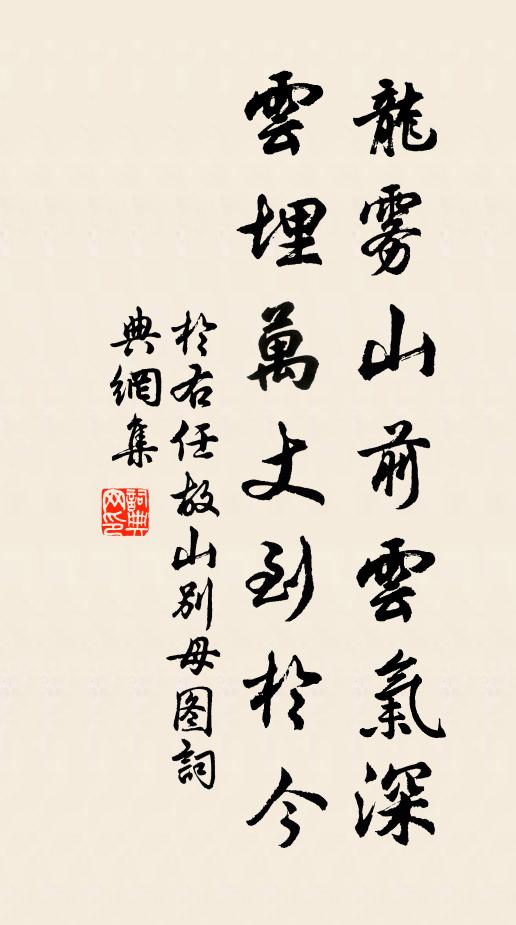 龍雾山前雲氣深
雲埋萬丈到於今
於右任故山别母图詞
典網集
詞典网印